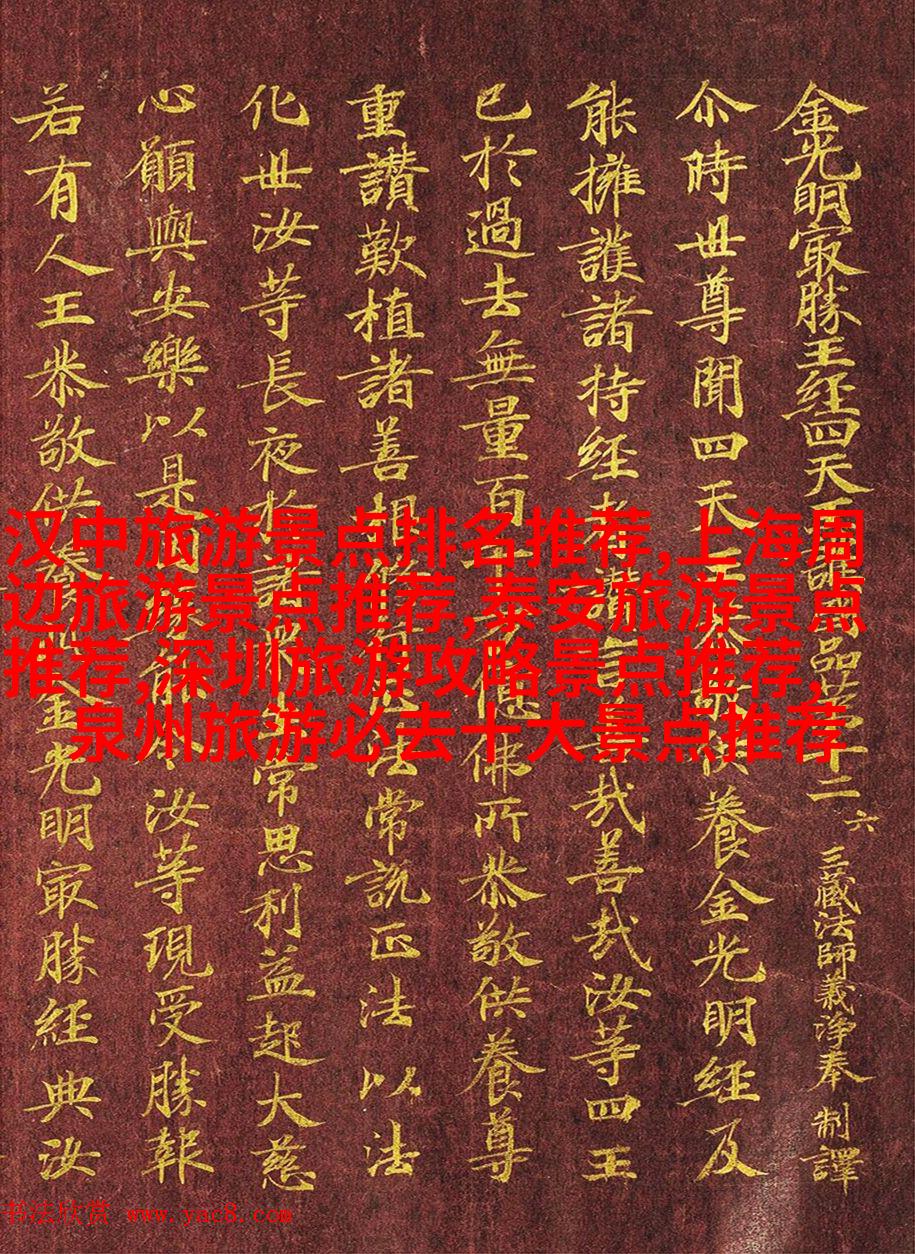 金光明冣勝王經四天王護國品苐十二 六 三藏法師義淨奉 制譯
尒時世尊聞四天王恭敬供養金光明經及
能擁護諸持經者讚言善哉善哉汝等四王
已於過去無量百千万億佛所恭敬供養尊
重讃歎植諸善根修行正法常說正法以法
化世汝等長夜於諸眾生常思利益起大慈
心願與安樂以是因緣能令汝等現受勝報
若有人王恭敬供養此金光明冣勝經典汝
汉中旅游景点排名推荐,上海周
边旅游景点推荐,泰安旅游景点
推荐,深圳旅游攻略景点推荐,
泉州旅游必去十大景点推荐
书法欣赏 www.yac8.com